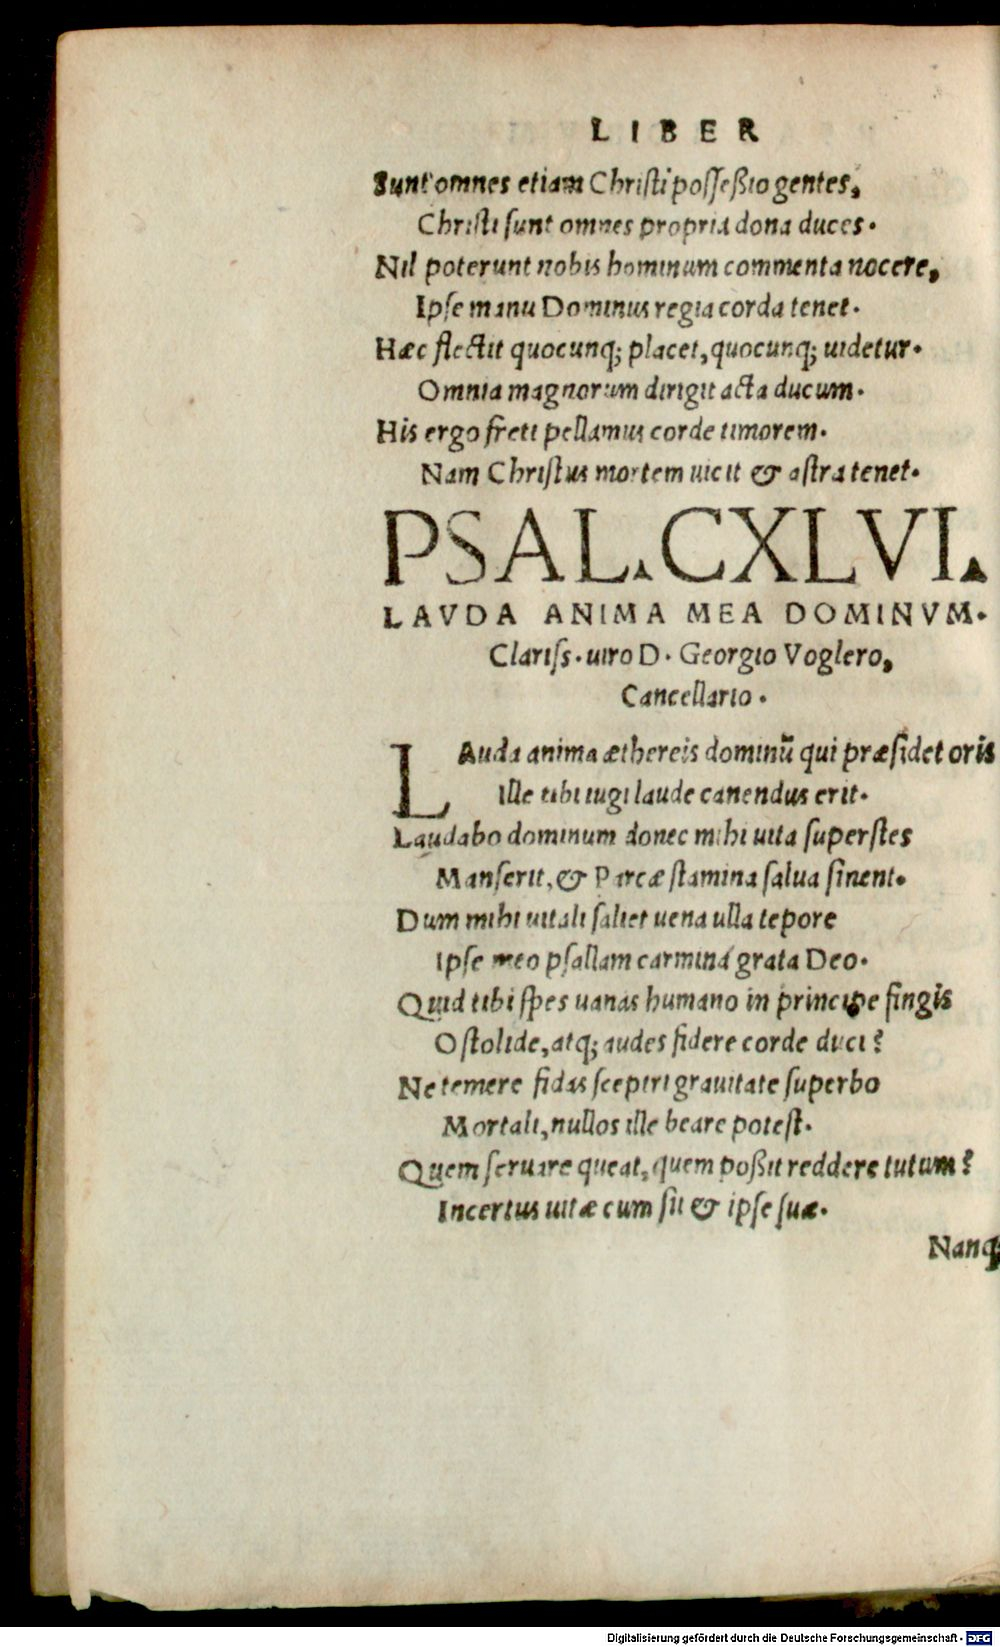 LIBER
Sunt omnes etiam Christi possessio gentes,
Christi sunt omnes propria dona duces.
Nil poterunt nobis hominum commenta nocere,
Ipse manu Dominus regia corda tenet.
Hæc flectit quocunq; placet, quocunq; uidetur.
Omnia magnorum dirigit acta ducum.
His ergo freti pellamus corde timorem.
Nam Christus mortem uicit & astra tenet.
PSAL. CXLVI.
LAVDA ANIMA MEA DOMINVM.
Clariss. uiro D. Georgio Voglero,
Cancellario.
LAuda anima æthereis dominū qui præsidet oris
Ille tibi iugi laude canendus erit.
Laudabo dominum donec mihi uita superstes
Manserit, & Parcæ stamina salua sinent.
Dum mihi uitali saliet uena ulla tepore
Ipse meo psallam carmina grata Deo.
Quid tibi spes uanas humano in principe fingis
O stolide, atq; audes fidere corde duci?
Ne temere fidas sceptri grauitate superbo
Mortali, nullos ille beare potest.
Quem seruare queat, quem possit reddere tutum?
Incertus uitæ cum sit & ipse suæ.
Nanq;
Digitalisierung gefördert durch die Deutsche Forschungsgemeinschaft - DFG